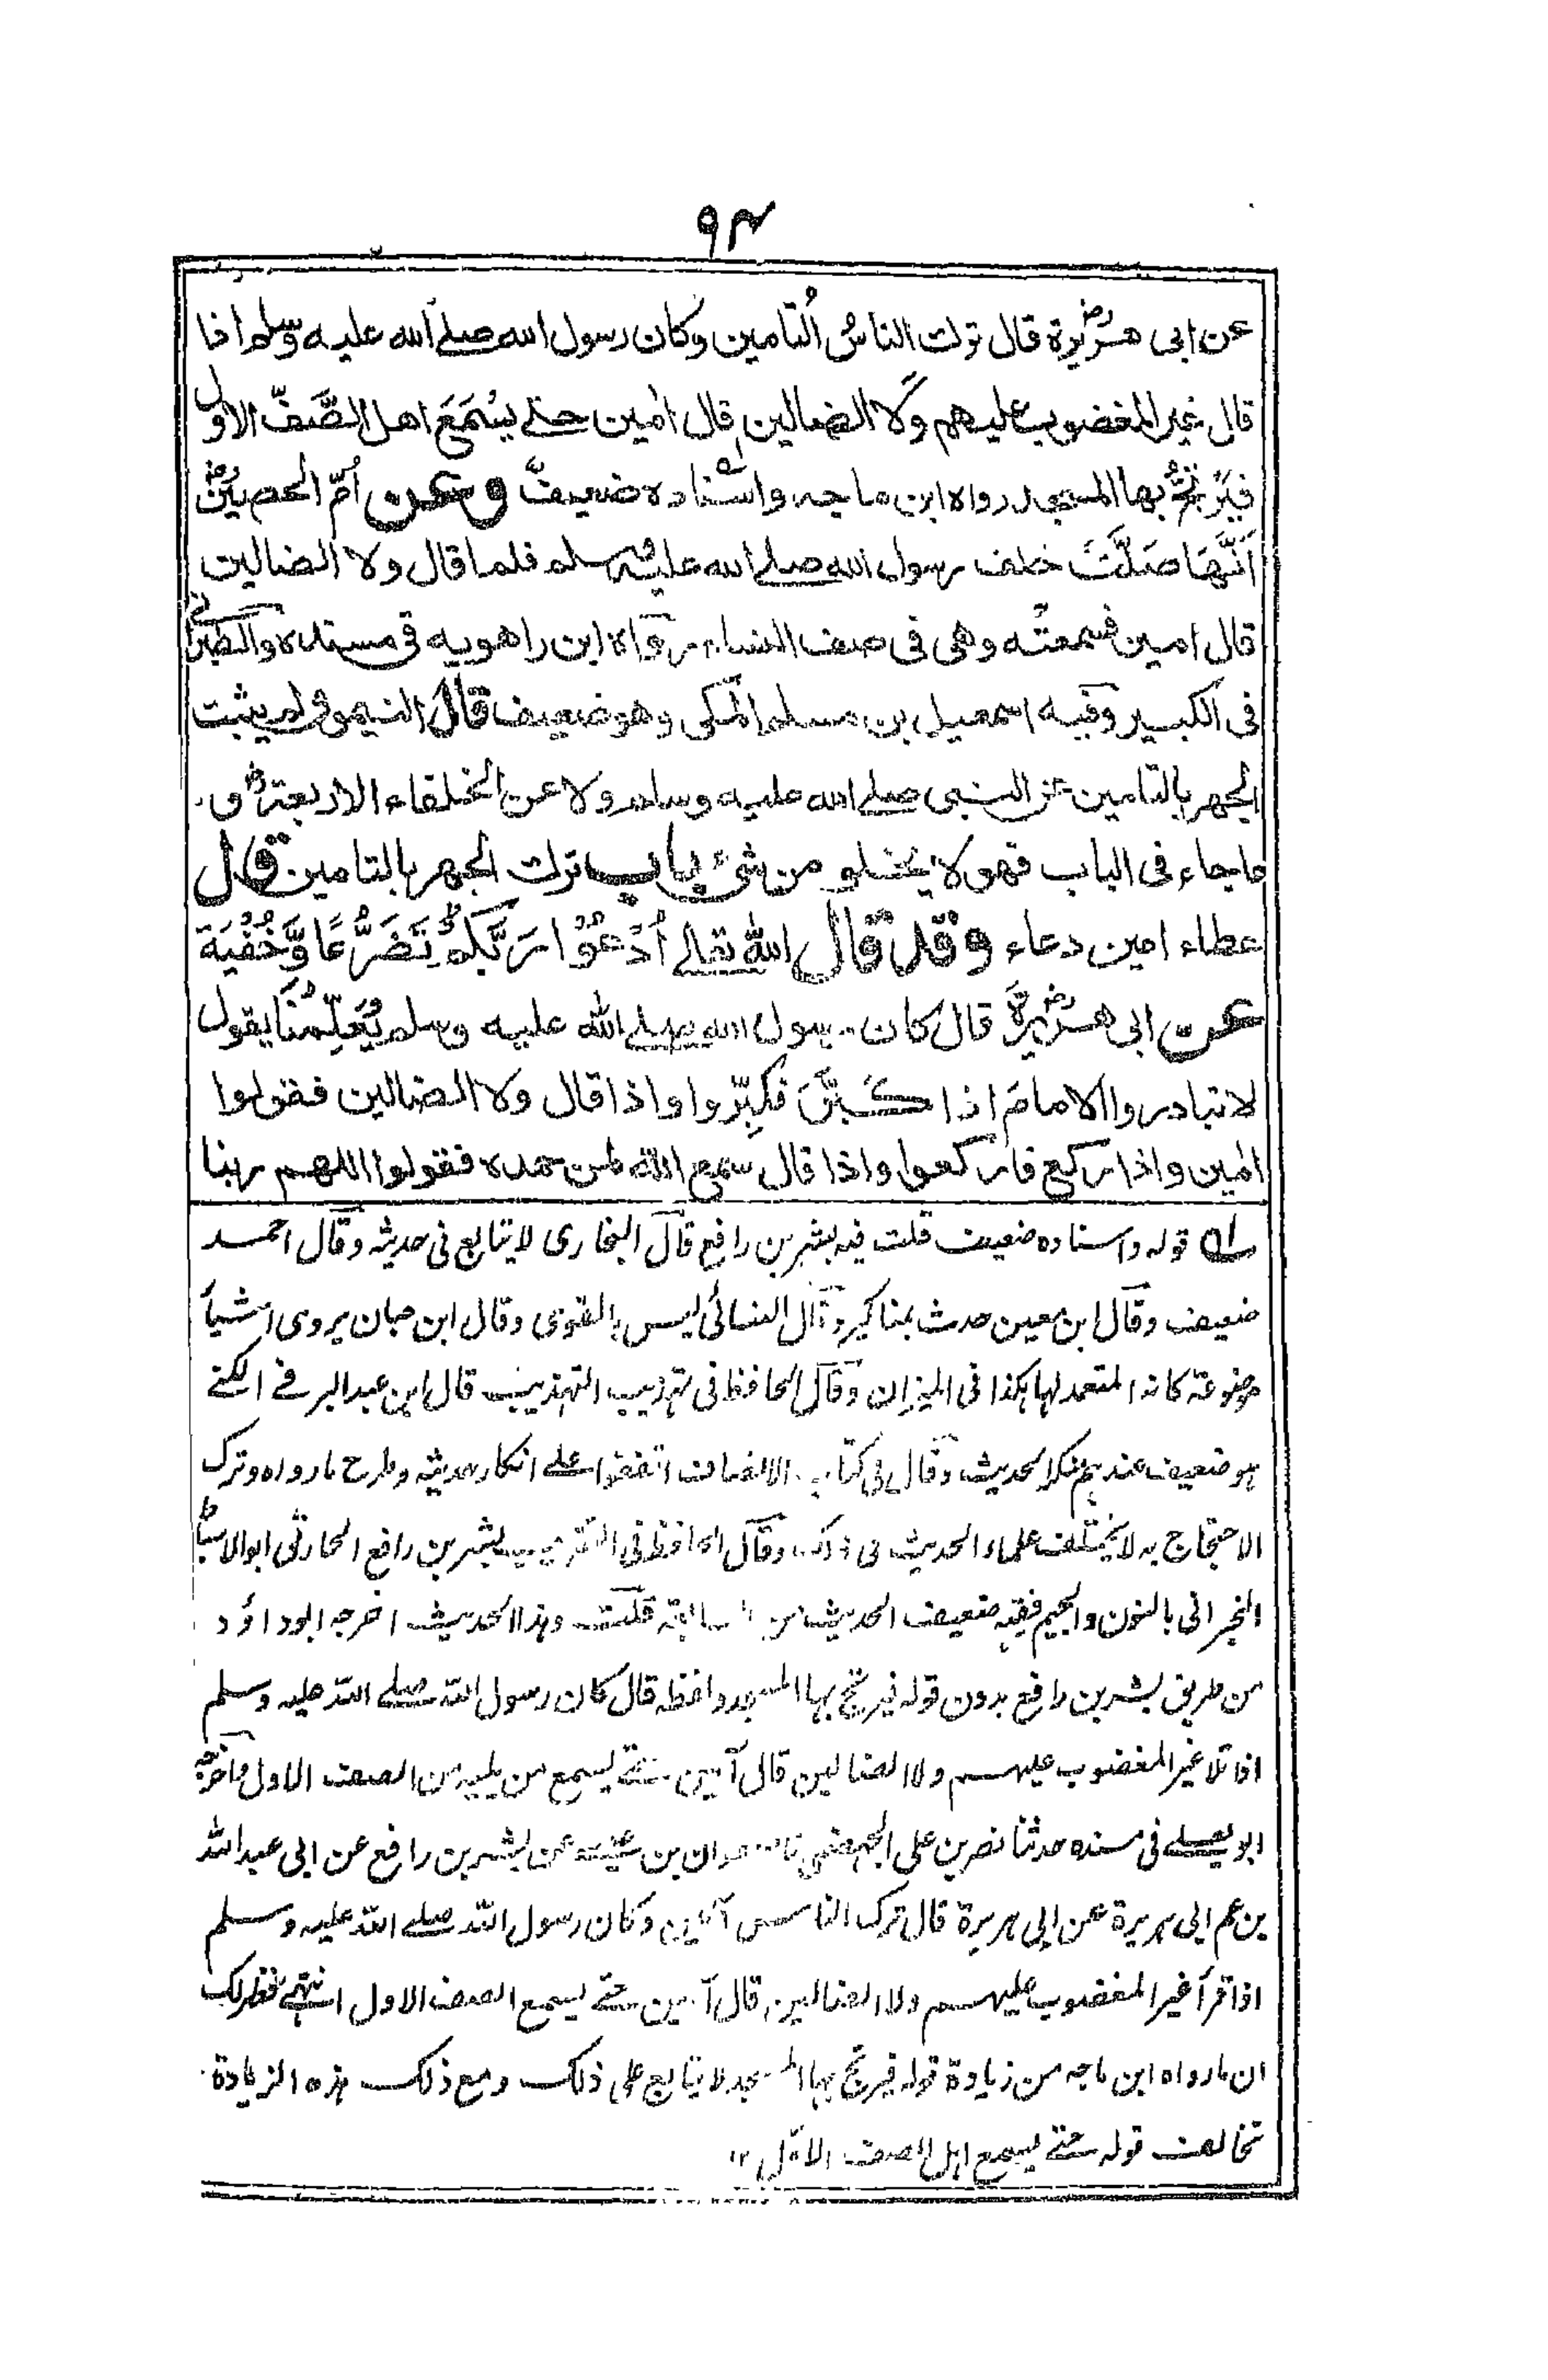 ٩٣
عن ابى هريرة رض قال ترك الناسُ التامين وكان رسول الله صلے الله عليه وسلم اذا
قال غير المغضوب عليهم ولا الضالين قال اٰمين حتے يَسْمَعَ اهل الصَّفِّ الاول
فيَرْتَجُّ بها المسجد رواه ابن ماجه واسناده ضعيف وعن اُمّ الحصين رض
اَنَّهَا صَلَّتْ خلف رسول الله صلے الله عليه وسلم فلما قال ولا الضالين
قال امين فسمعتْه وهى فى صف النساء رواه ابن راهويه فى مسنده والطبرانى
فى الكبير وفيه اسمعيل بن مسلم المكى وهو ضعيف قال النيموى لم يثبت
الجهر بالتامين عن النبى صلے الله عليه وسلم ولا عن الخلفاء الاربعة رض و
ما جاء فى الباب فهو لا يخلو من شئ باب ترك الجهر بالتامين قال
عطاء امين دعاء وقد قال الله تعالى اُدْعُوْا رَبَّكُمْ تَضَرُّعًا وَّخُفْيَةً
عن ابى هريرة رض قال كان رسول الله صلے الله عليه وسلم يُعَلِّمُنَا يقول
لا تبادروا الامامَ اذا كَبَّرَ فكبِّروا واذا قال ولا الضالين فقولوا
اٰمين واذا ركع فاركعوا واذا قال سمع الله لمن حمده فقولوا اللهم ربنا
لـه قوله واسناده ضعيف قلت فيه بشر بن رافع قال البخارى لا يتابع فى حديثه وقال احمد
ضعيف وقال ابن معين حدث بمناكير وقال النسائى ليس بالقوى وقال ابن حبان يروى اشياءً
موضوعة كانه المتعمد لها هكذا فى الميزان وقال الحافظ فى تهذيب التهذيب قال ابن عبد البر فے الكنے
هو ضعيف عندهم منكر الحديث وقال فى كتاب الانصاف اتفقوا علے انكار حديثه وطرح ما رواه وترك
الاحتجاج به لا يختلف علماء الحديث فى ذلك وقال الحافظ فى التقريب بشر بن رافع الحارثى ابو الاسباط
النجرانى بالنون والجيم فقيه ضعيف الحديث من السابعة قلت وهذا الحديث اخرجه ابو داؤد
من طريق بشر بن رافع بدون قوله فيرتج بها المسجد ولفظه قال كان رسول الله صلے الله عليه وسلم
اذا تلا غير المغضوب عليهم ولا الضالين قال آمين حتے يسمع من يليه من الصف الاول واخرجه
ابو يعلے فى مسنده حدثنا نصر بن على الجهضمى نا صفوان بن عيسے عن بشر بن رافع عن ابى عبد الله
بن عم ابى هريرة عن ابى هريرة قال ترك الناس آمين وكان رسول الله صلے الله عليه وسلم
اذا قرأ غير المغضوب عليهم ولا الضالين قال آمين حتے يسمع الصف الاول انتهے فظهر لك
ان ما رواه ابن ماجه من زيادة قوله فيرتج بها المسجد لا يتابع على ذلك ومع ذلك هذه الزيادة
تخالف قوله حتے يسمع اهل الصف الاول ١٢